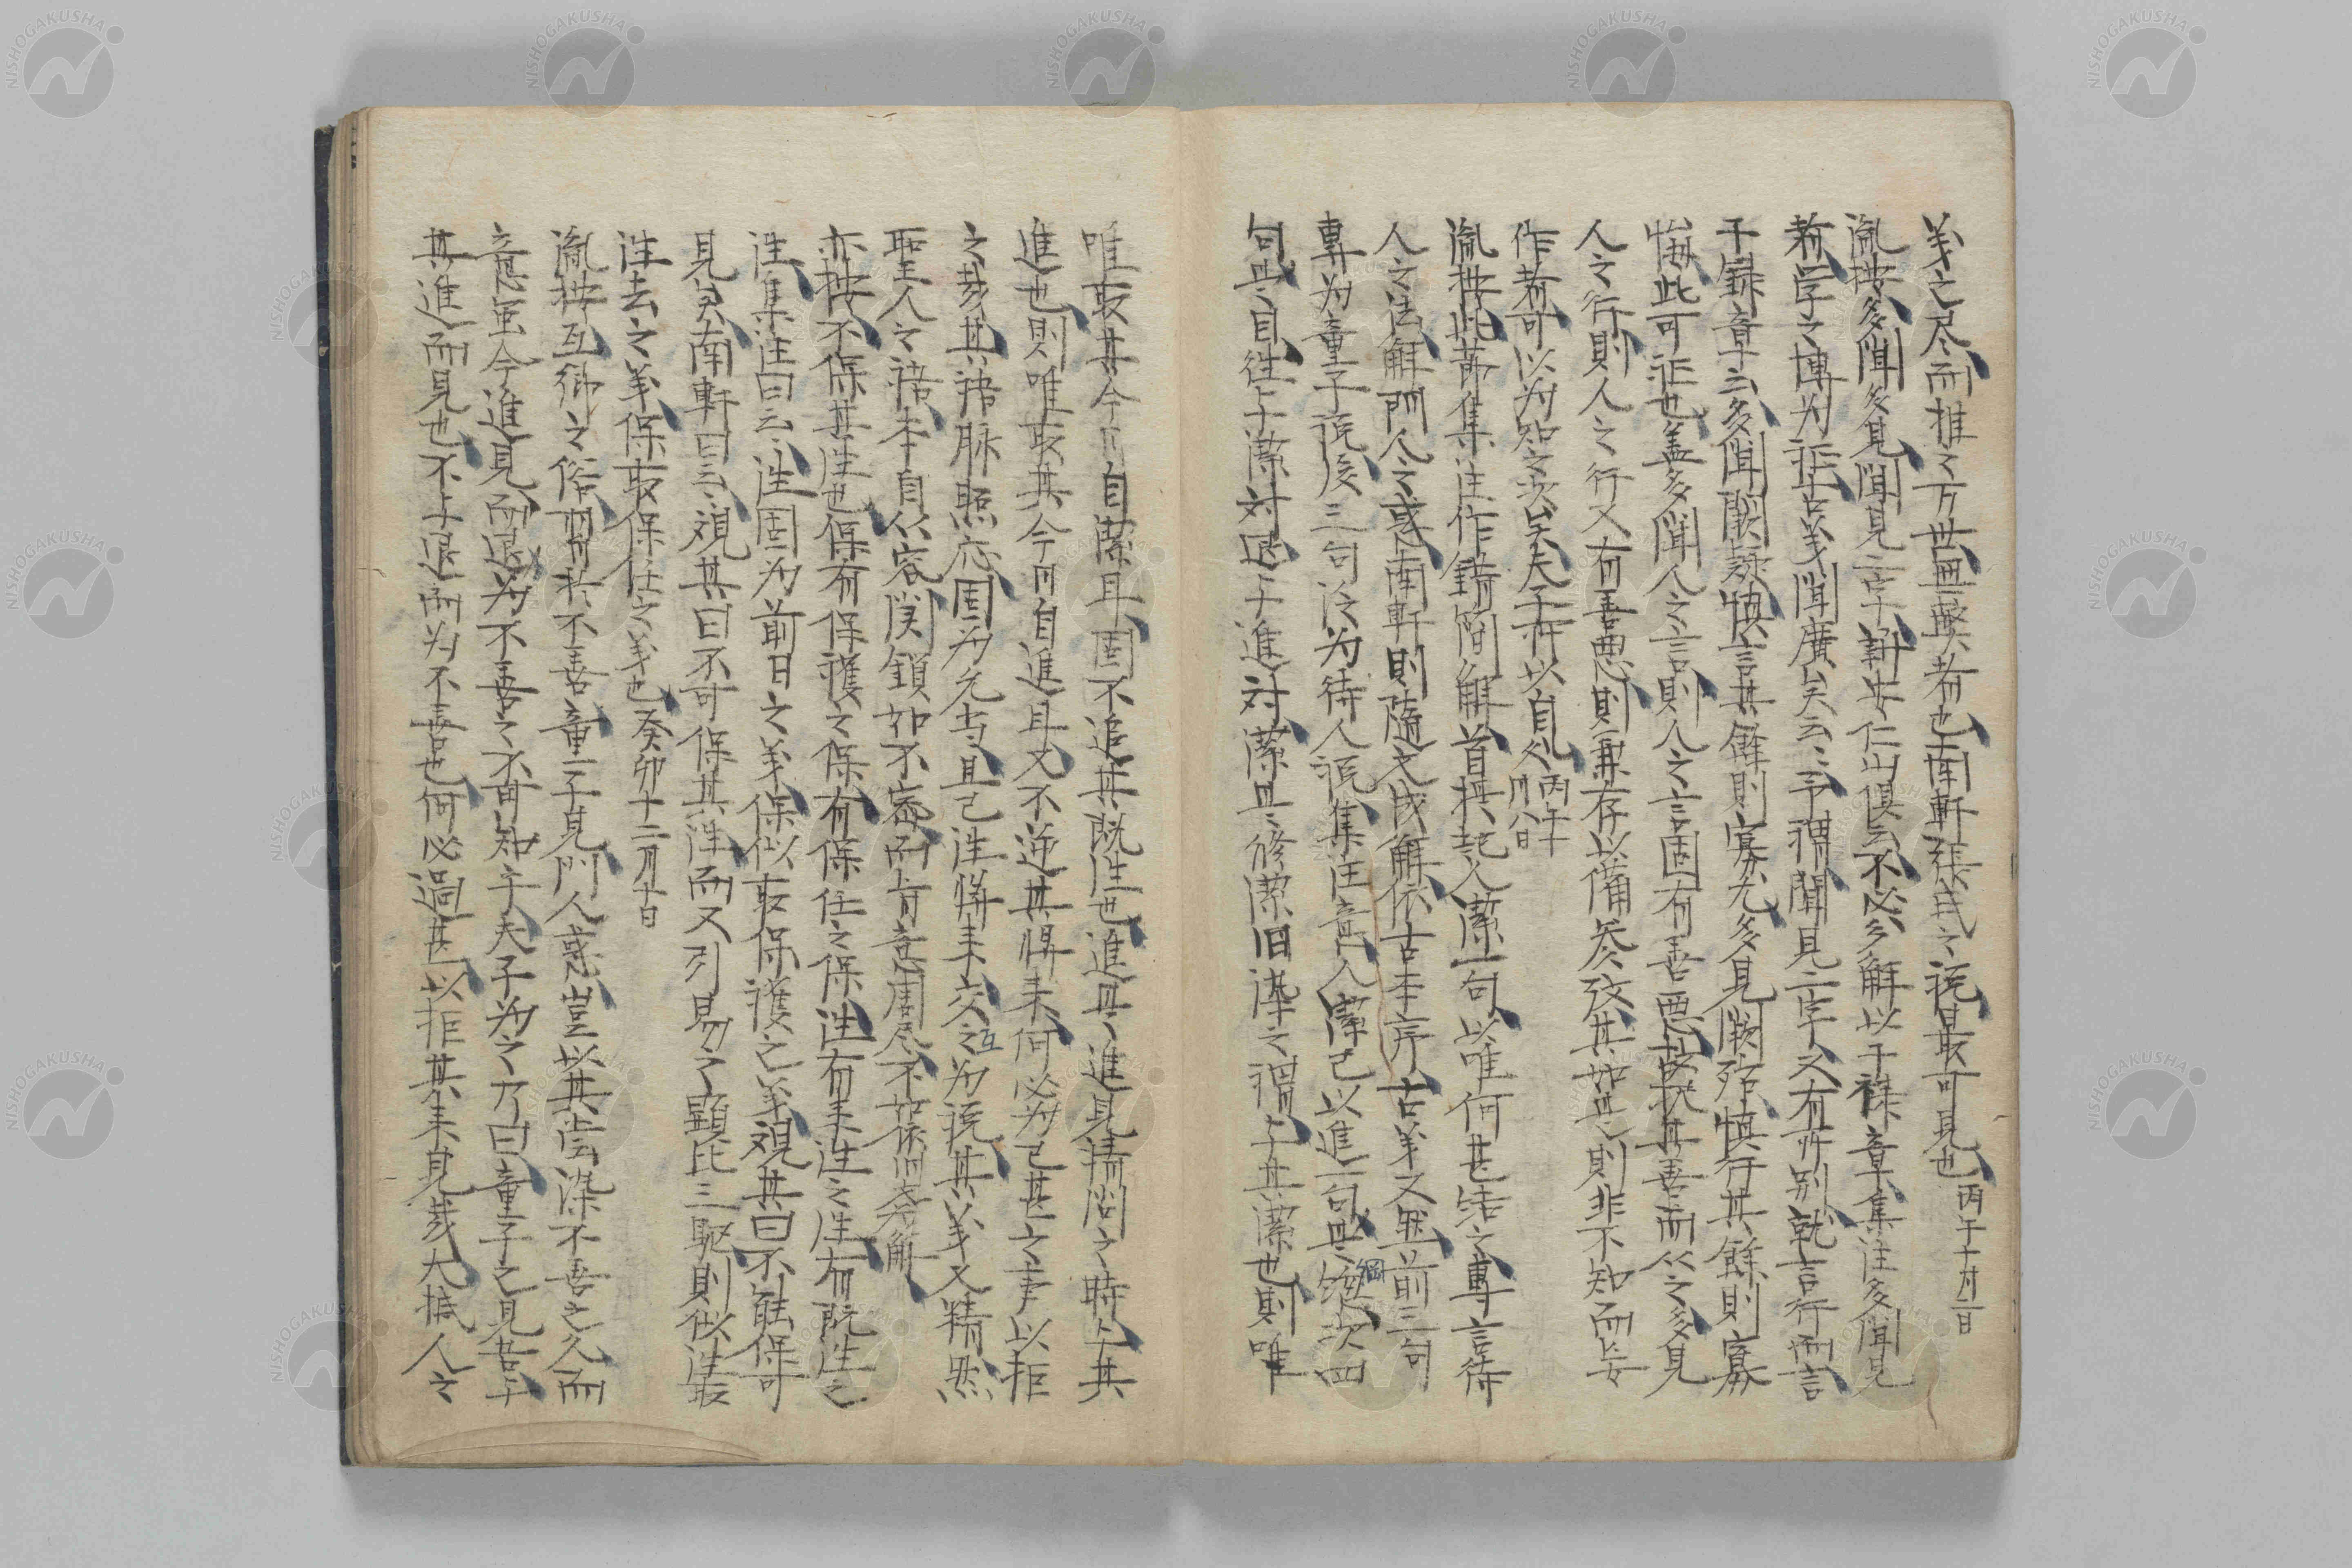 義之尽而推之万世無弊者也南軒張氏之説最可見也丙午十月二日
胤按多聞多見聞見二字新安仁山俱云不必多解以干禄章集注多聞見
者学之博为証古義聞廣矣云云予謂聞見二字又有所别就言行而言
干録章云多聞闕疑慎言其餘則寡尤多見闕殆慎行其餘則寡
悔此可証也盖多聞人之言則人之言固有善悪故択其善而从之多見
人之行則人之行又有善悪則兼存以備参攷其如此則非不知而妄
作者可以为知之次矣夫子所以自処丙午十月八日
胤按此節集注作錯简解首掲起人潔一句以唯何甚結之專言待
人之法解門人之惑南軒則隨文成解依古本序古義又然前三句
專为童子説後三句泛为待人説集注意人潔己以進一句是綱次四
句是目往与潔対退与進対潔是修潔旧染之謂与其潔也則唯
唯取其今日自潔耳固不追其既往也進是進見请问之時与其
進也則唯取其今日自進耳又不逆其將来何必为已甚之事以拒
之哉其神脉照応固为允当且已往將来交互为説其義又精然
聖人之語本自从容関鎖如不密而旨意周尽不如依旧序为解
亦按不保其往也保有保護之保有保任之保往有来往之往有既往之
往集注曰云云往固为前日之義保似取保護之義觀其曰不能保可
見矣南軒曰云云觀其曰不可保其往而又引易之顕比三駆則似往取
往去之義保取保任之義也癸卯十二月十日
胤按互郷之俗習於不善童子見門人惑豈以其嘗染不善之久而
意虽今進見而退为不善之不可知乎夫子为之乃曰童子之見吾与
其進而見也不与退而为不善也何必過甚以拒其来見哉大抵人之